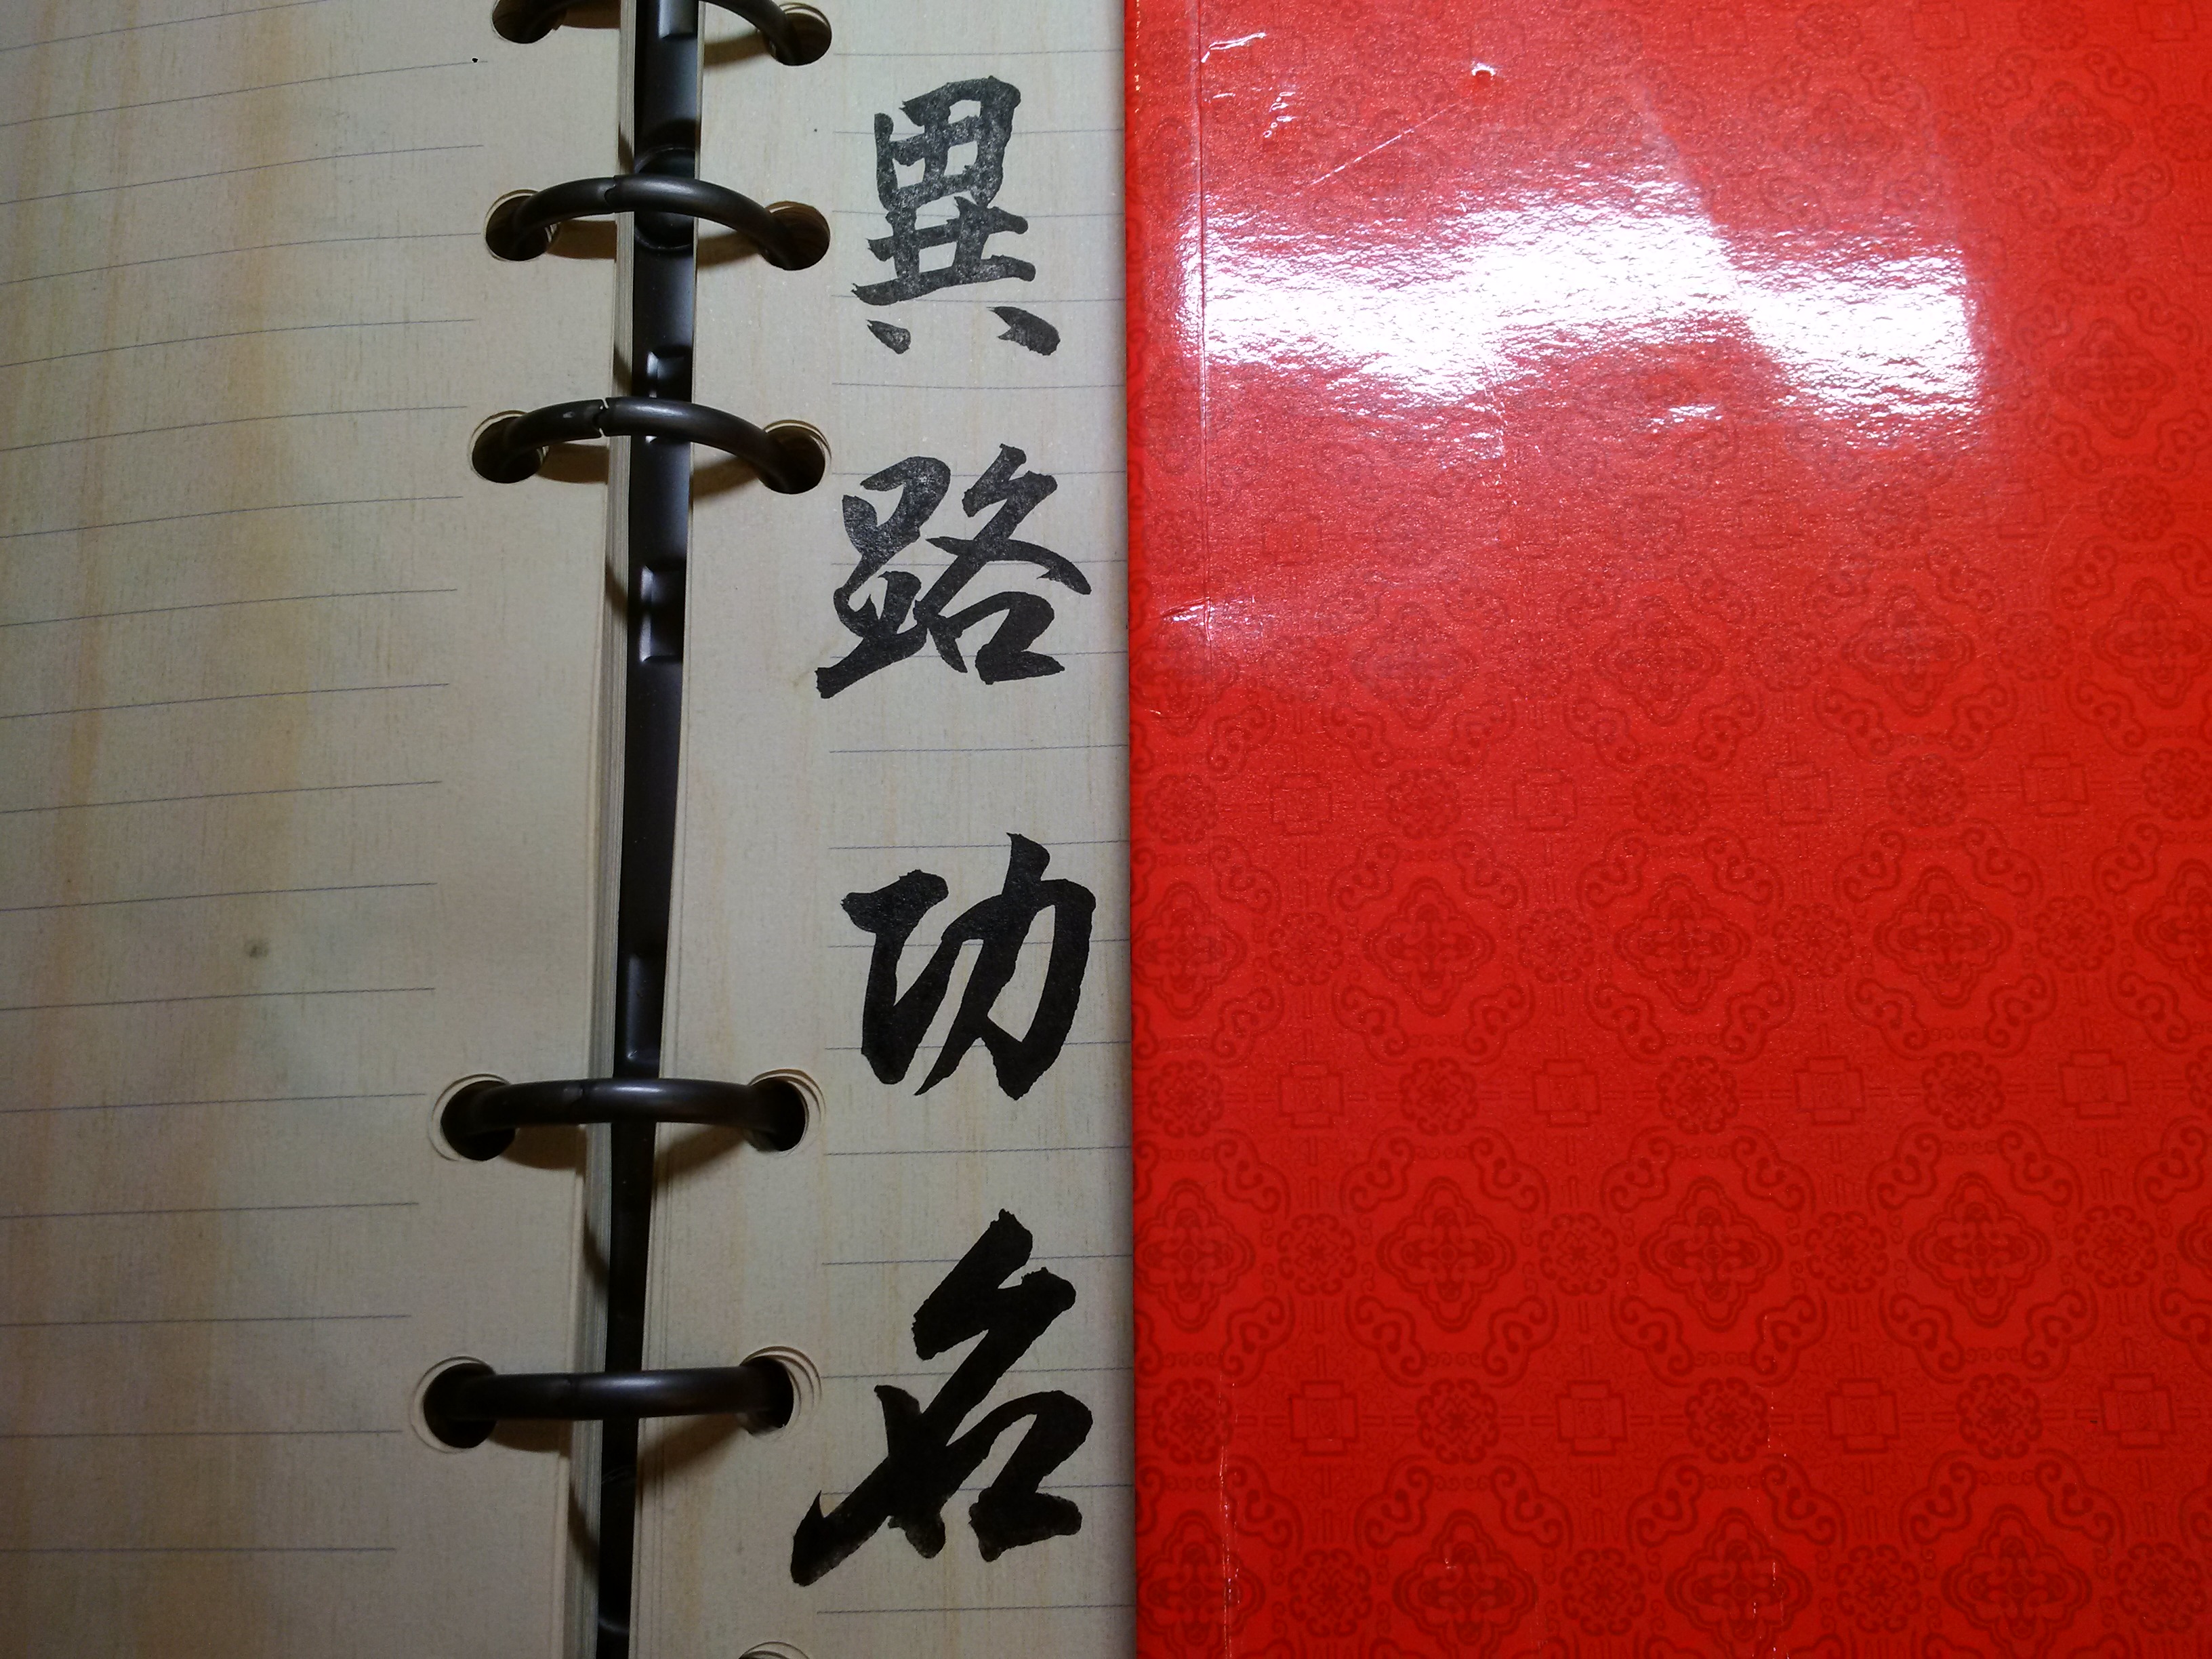 異路功名